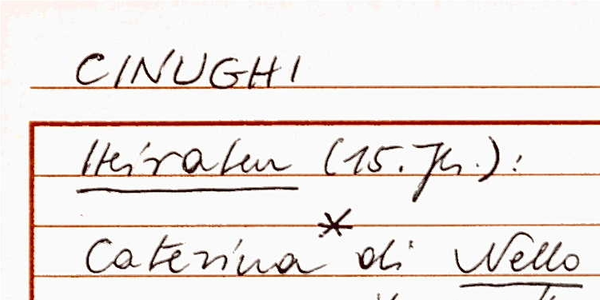 CINUGHI
Heiraten (15. Jh.):
Caterina * di Nello